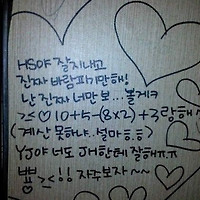 HS야 잘지내고
진짜 바람피기만해!
난 진짜 너만 보...볼게ㅋ
><♡10+5-(8x2)+3랑해^^
(계산 못하냐..설마ㅎ.ㅎ)
YJ야 너도 JH한테 잘해ㅠ.ㅠ
뿅 ><!! 자주보자~~